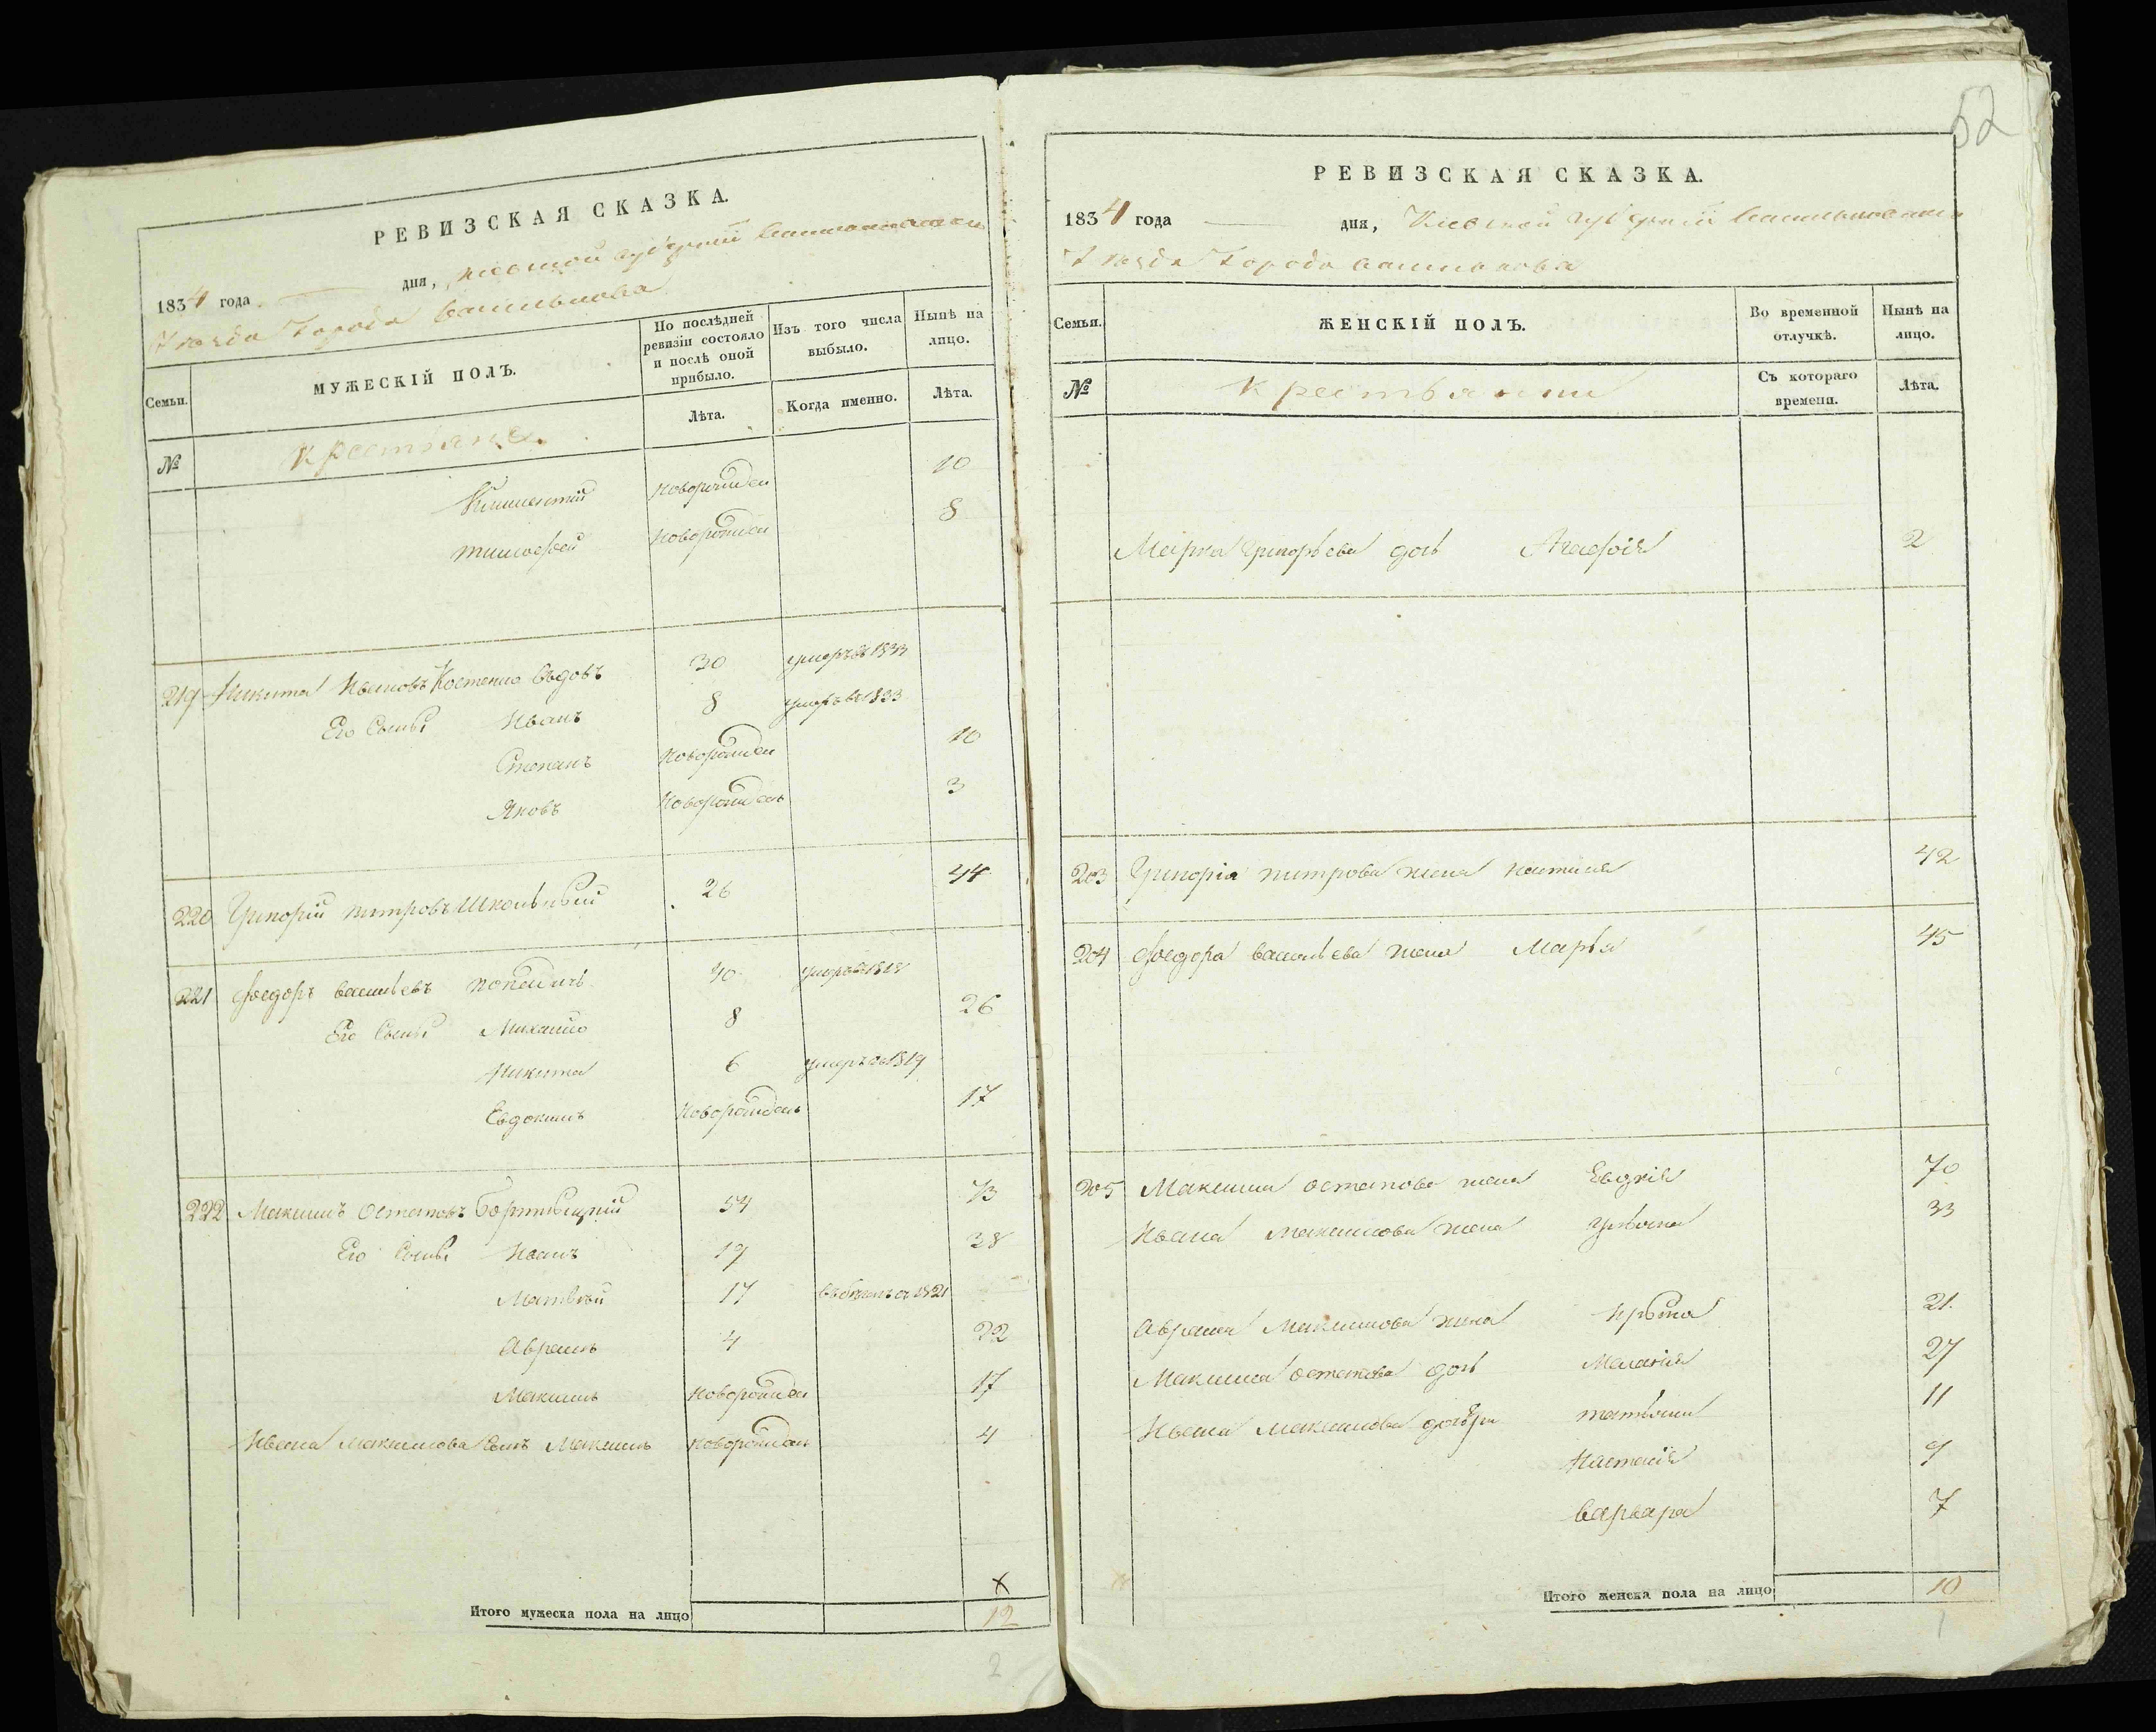 РЕВИЗСКАЯ СКАЗКА.
1834 года дня, Киевской губерній Васильковскаго
Уезда Города Василькова
Семьи. МУЖЕСКІЙ ПОЛЪ. По послѣдней ревизіи состояло и послѣ оной прибыло. Изъ того числа выбыло. Нынѣ на лицо.
№ Крестьяне Лѣта. Когда именно. Лѣта.
Климентій новорожден 10
тимофей новорожден 8
219 Никита Ивановъ Костенко вдовъ 30 умеръ въ 1833
Его Сыны Иванъ 8 умеръ въ 1833
Степанъ Новорожден 10
Яковъ Новорожденъ 3
220 Григорій питровъ Школьный 26 44
221 Федоръ васильевъ 40 умеръ въ 1818
Его Сыны Михайло 8 26
Никита 6 умеръ въ 1819
Евдокимъ Новорожденъ 17
222 Максимъ Остаповъ 54 73
Его Сыны Иванъ 19 38
Матвѣй 17 въ 1821
Аврамъ 4 22
Максимъ новорожден 17
Ивана максимова Сынъ Максимъ новорожденъ 4
х
Итого мужеска пола на лицо 12
2
52
РЕВИЗСКАЯ СКАЗКА.
1834 года дня, Киевской губерній Васильковскаго
Уезда Города Василькова
Семьи. ЖЕНСКІЙ ПОЛЪ. Во временной отлучкѣ. Нынѣ на лицо.
№ Крестьянки Съ котораго времени. Лѣта.
Марка григорьева дочь Агафія 2
203 Григорія питрова жена 42
204 Федора васильева жена Марья 45
205 Максима остапова жена Евдкія 70
Ивана максимова жена 33
Аврама Максимова жена 21.
Максима остапова дочь Меланія 27
Ивана максимова дочѣри татьяна 11
Настасія 9
варвара 7
Итого женска пола на лицо 10